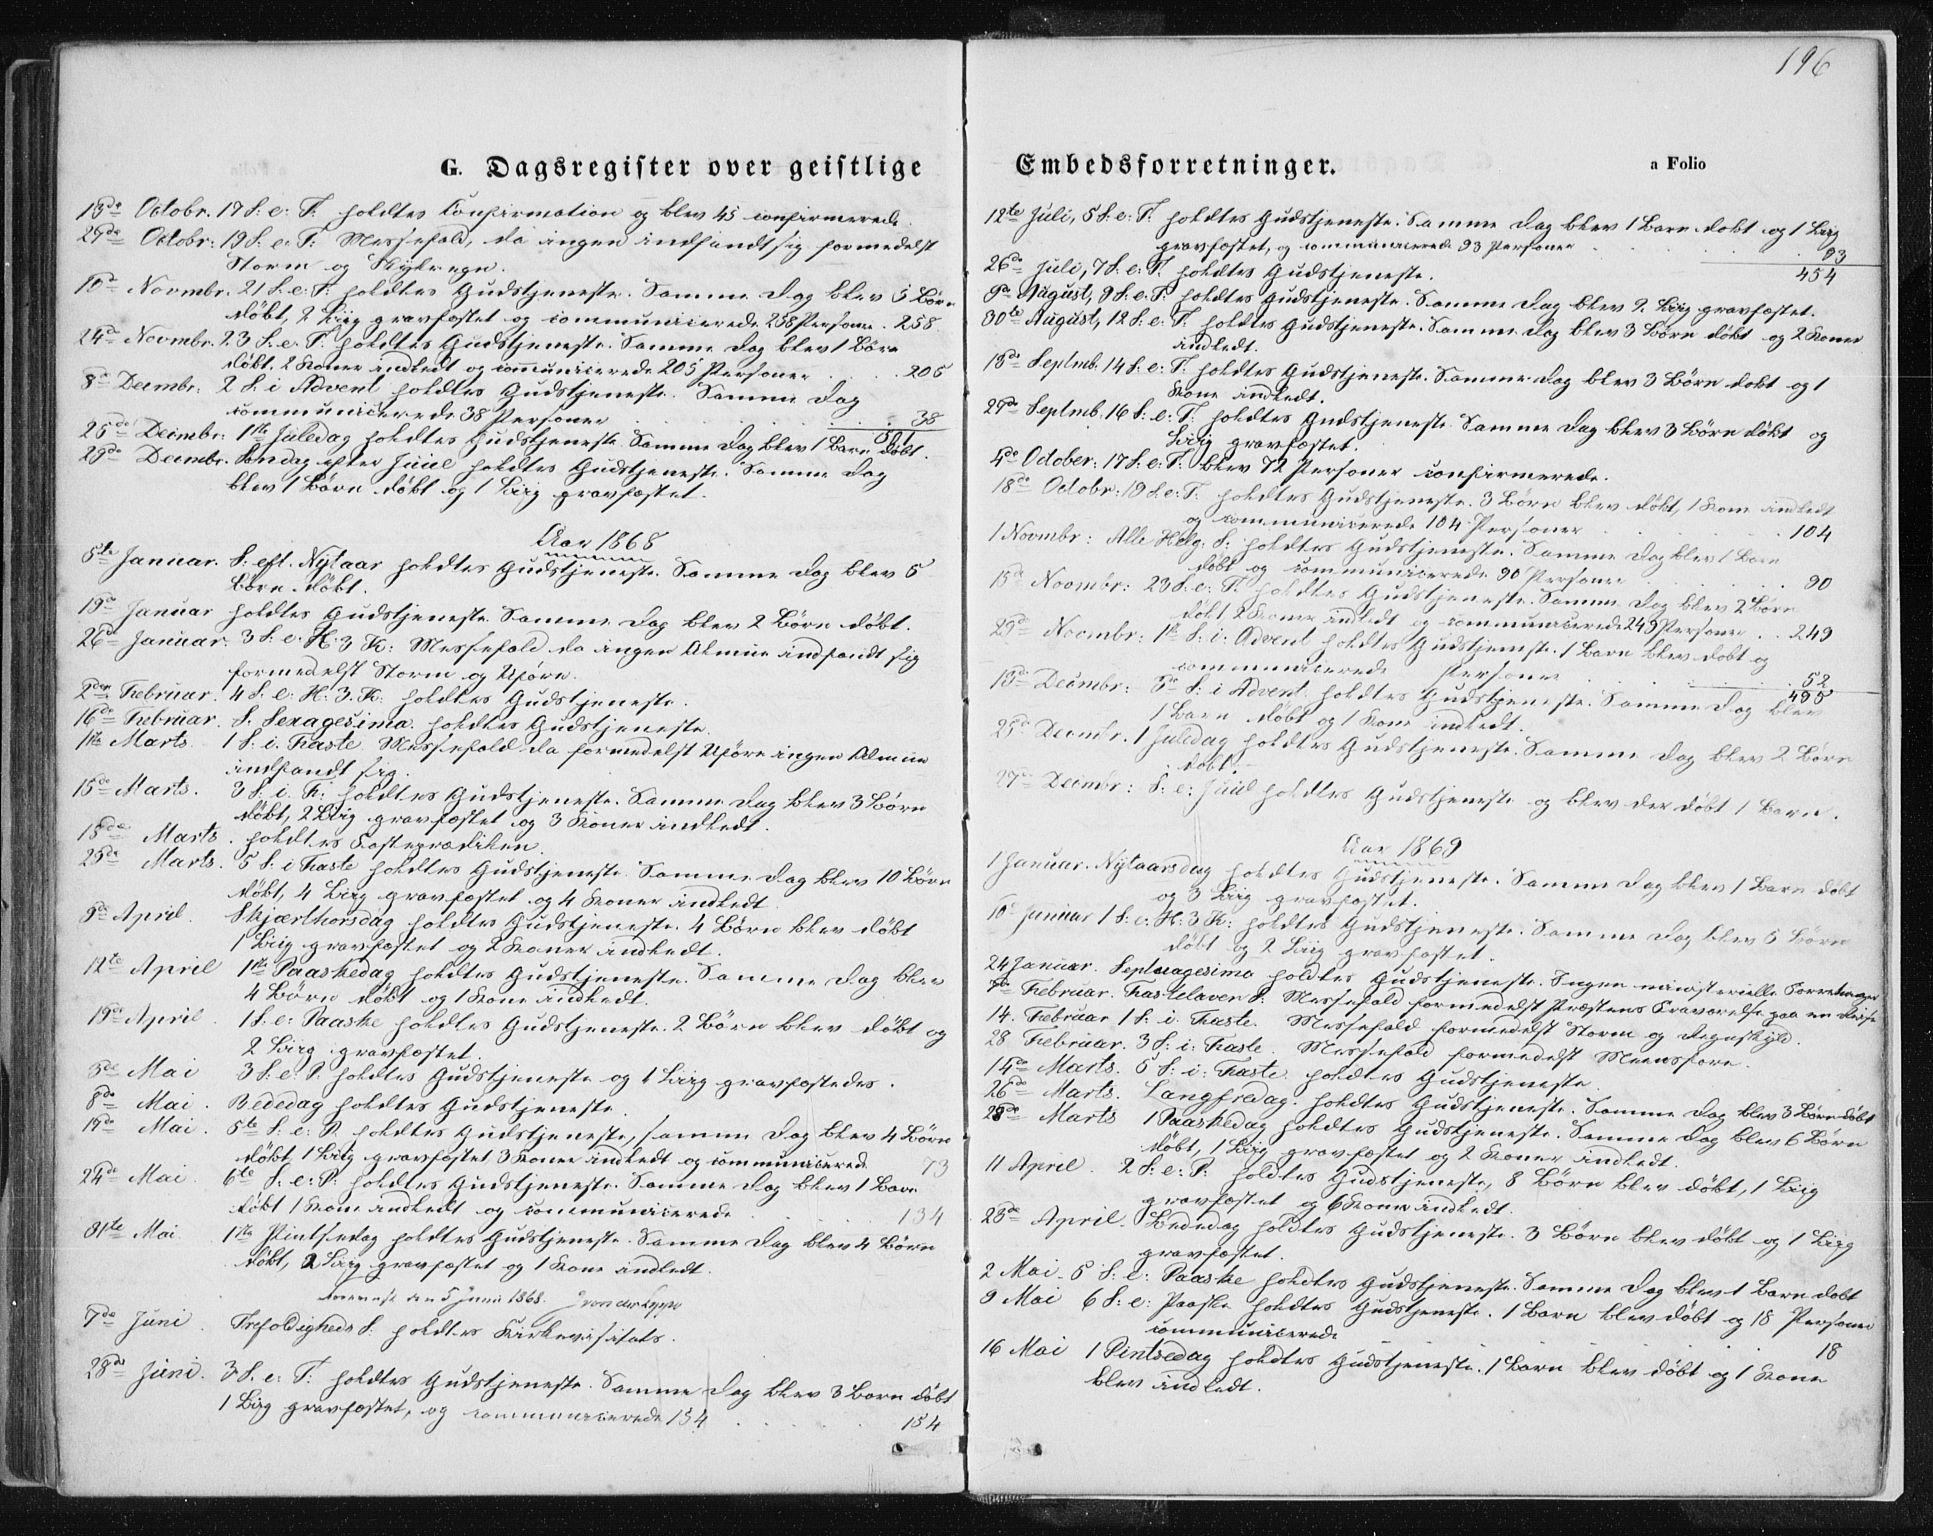 G. Dagsregister over geistlige
13de Octobr. 17 S. e. T. holdtes Confirmation og blev 45 confirmerede.
27de Octobr: 19 S. e. T: Messefald, da ingen indfandt sig formedelst
Storm og Skylregn.
10de Novmbr. 21 S. e. T. holdtes Gudstjeneste. Samme Dag blev 5 Børn
døbt, 2 Liig gravfæstet og communicerede 258 Personer. 258.
24de Novmbr. 23 S. e. T. holdtes Gudstjeneste. Samme Dag blev 1 Børn
døbt, 2 Koner indledt og communicerede 205 Personer . . . . 205
8de Decmbr: 2 S. i Advent holdtes Gudstjeneste. Samme Dag
communicerede 38 Personer . . . . 38
501
25de Decmbr: 1ste Juledag holdtes Gudstjeneste Samme Dag blev 1 Barn døbt.
29de Decmbr. Søndag efter Juul holdtes Gudstjeneste. Samme Dag
blev 1 Børn døbt og 1 Liig gravfæstet.
Aar 1868
5te Januar. S. eft. Nytaar holdtes Gudstjeneste. Samme Dag blev 5
Børn døbt.
19de Januar holdtes Gudstjeneste Samme Dag blev 2 Børn døbt.
26de Januar. 3 S. e. H. 3 K: Messefald da ingen Almue indfandt sig
formedelst Storm og Uføre.
2den Februar. 4 S. e: H. 3. K. holdtes Gudstjeneste.
16de Februar. S. Sexagesima. holdtes Gudstjeneste.
1ste Marts 1 S. i. Faste Messefald da formedelst Uføre ingen Almue
indfandt sig.
15de Marts. 3 S. i. F. holdtes Gudstjeneste. Samme Dag blev 3 Børn
døbt, 2 Liig gravfæstet og 3 Koner indledt.
18de Marts. holdtes Fasteprædiken.
25de Marts. 5 S. i Faste holdtes Gudstjeneste. Samme Dag blev 10 Børn
døbt, 4 Liig gravfæstet og 4 Koner indledt.
9de April. Skjærthorsdag holdtes Gudstjeneste. 4 Børn blev døbt
1 Liig gravfæstet og 2 Koner indledt.
12te April 1ste Paaskedag holdtes Gudstjeneste. Samme Dag blev
4 Børn døbt og 1 Kone indledt.
19de April 1 S. e: Paaske holdtes Gudstjeneste. 2 Børn blev døbt og
2 Liig gravfæstet.
3de Mai 3 S. e. P. holdtes Gudstjeneste og 1 Liig gravfæstedes.
8de Mai. Bededag holdtes Gudstjeneste.
17de Mai. 5te S. e: P. holdtes Gudstjeneste, samme Dag blev 4 Børn
døbt, 1 Liig gravfæstet 3 Koner indledt og communicerede 73
24de Mai. 6te S. e: P. holdtes Gudstjeneste. Samme Dag blev 1 Barn
døbt 1 Kone indledt og communicerede . . . 134
31te Mai 1ste Pintsedag holdtes Gudstjeneste. Samme Dag blev 4 Børn
døbt, 2 Liig gravfæstet og 1 Kone indledt.
den 5 Juni 1868.
7de Juni. Trefoldigheds S. holdtes Kirkevisitats.
28de Juni. 3 S. e. T. holdtes Gudstjeneste. Samme Dag blev 3 Børn døbt
1 Liig gravfæstet, og communicerede 154 . . . . 154
196
Embedsforretninger. a Folio
12te Juli, 5 S. e. T. holdtes Gudstjeneste. Samme Dag blev 1 Barn døbt og 1 Liig
gravfæstet, og communicerede 93 Personer . . . . 93
454
26de Juli, 7 S. e. T. holdtes Gudstjeneste.
9de August, 9 S. e: T. holdtes Gudstjeneste. Samme Dag blev 2 Liig gravfæstet.
30te August, 12 S. e: T. holdtes Gudstjeneste. Samme Dag blev 3 Børn døbt og 2 Koner
indledt.
13de Septmb. 14 S. e: T. holdtes Gudstjeneste. Samme Dag blev 3 Børn døbt og 1
Kone indledt.
27de Septmb. 16 S. e: T. holdtes Gudstjeneste Samme Dag blev 3 Børn døbt og
Liig gravfæstet.
4de October: 17 S. e: T: blev 72 Personer confirmerede.
18de Octobr: 19 S. e: T: holdtes Gudstjeneste. 3 Børn blev døbt, 1 Kone indledt
og communicerede 104 Personer . . . . 104
1 Novmbr: Alle Helg. S. holdtes Gudstjeneste. Samme Dag blev 1 Barn
døbt og communicerede 90 Personer . . . . 90
15de Novmbr: 23 S. e. T. holdtes Gudstjeneste. Samme Dag blev 2 Børn
døbt, 2 Koner indledt og communicerede 249 Personer . . 249
29de Novmbr: 1ste S. i: Advent holdtes Gudstjeneste. 1 Barn blev døbt og
communicerede Personer . . . . 52
495
13de Decmbr: 3de S. i Advent. holdtes Gudstjeneste. Samme Dag blev
1 Barn døbt og 1 Kone indledt.
25de Decmbr. 1 Juledag holdtes Gudstjeneste. Samme Dag blev 2 Børn
døbt.
27de Decmbr: S. e: Juul holdtes Gudstjeneste og blev der døbt 1 Barn.
Aar 1869
1 Januar. Nytaarsdag holdtes Gudstjeneste. Samme Dag blev 1 Barn døbt
og 3 Liig gravfæstet.
10de Januar 1 S. e: H. 3 K: holdtes Gudstjeneste. Samme Dag blev 5 Børn
døbt og 2 Liig gravfæstet.
24 Januar. Septuagesima holdtes Gudstjeneste. Ingen ministerielle Forretninger
7de Februar. Fastelavens S. Messefald formedelst Præstens Fraværelse paa en Reise
14. Februar 1 S. i. Faste. Messefald formedelst Storm og Regnskyld.
28 Februar. 3 S: i: Faste. Messefald formedelst Meensføre.
14de Marts. 5 S: i: Faste holdtes Gudstjeneste.
26de Marts. Langfredag. holdtes Gudstjeneste. Samme Dag blev 3 Børn døbt
28de Marts 1 Paaskedag holdtes Gudstjeneste. Samme Dag blev 6 Børn
døbt, 1 Liig gravfæstet og 2 Koner indledt.
11 April. 2 S. e: P. holdtes Gudstjeneste, 8 Børn blev døbt, 1 Liig
gravfæstet og 6 Koner indledt.
23de April. Bededag holdtes Gudstjeneste. 3 Børn blev døbt og 1 Liig
gravfæstet.
2 Mai. 5 S. e: Paaske holdtes Gudstjeneste. Samme Dag blev 1 Barn døbt
9 Mai 6 S: e: Paaske holdtes Gudstjeneste. 1 Barn blev døbt og 18 Personer
communicerede . . . . 18
16 Mai 1 Pintsedag holdtes Gudstjeneste. 1 Barn blev døbt og 1 Kone
blev indledt.